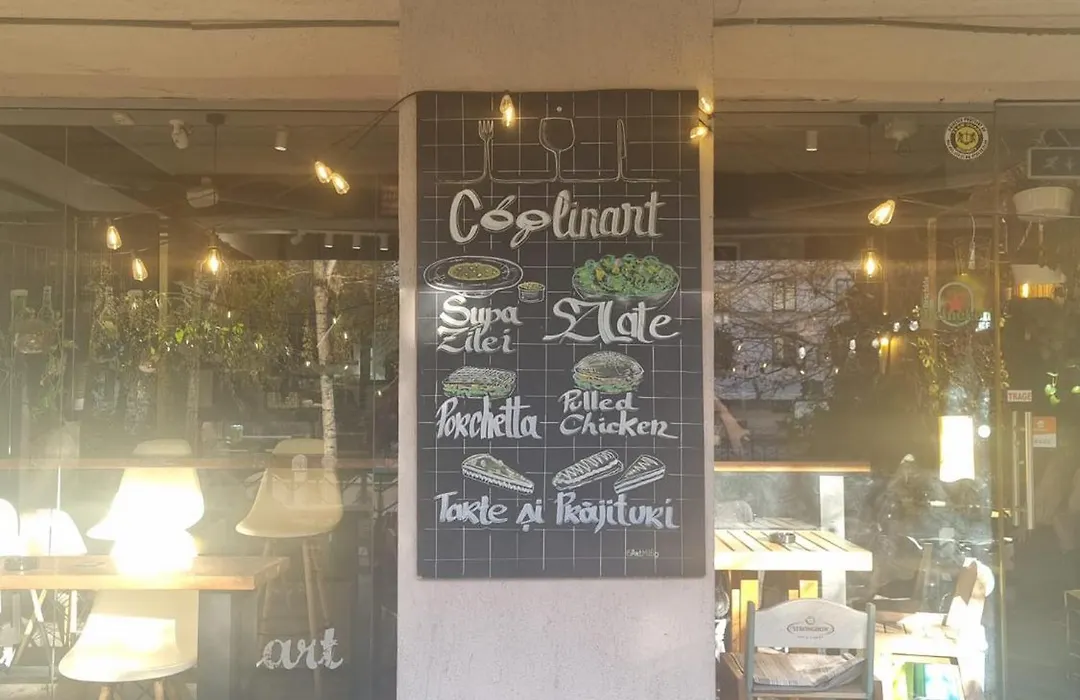 Coolinart
Supa
Zilei
SALate
Porchetta
Pulled
Chicken
Tarte și Prăjituri
art
TRAGE
STRONGBOW
Heineken